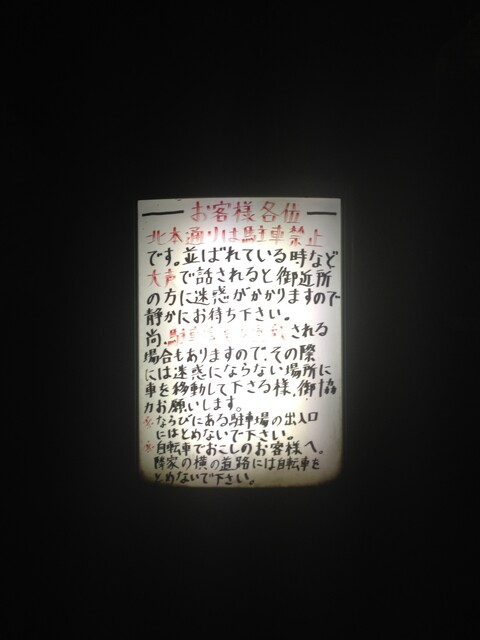 お客様各位
北本通りは駐車禁止
です。並ばれている時など
大声で話されると御近所
の方に迷惑がかかりますので
静かにお待ち下さい。
尚、駐車 される
場合もありますので、その際
には迷惑にならない場所に
車を移動して下さる様、御協
力お願いします。
※ならびにある駐車場の出入口
にはとめないで下さい。
※自転車でおこしのお客様へ。
隣家の横の道路には自転車を
とめないで下さい。